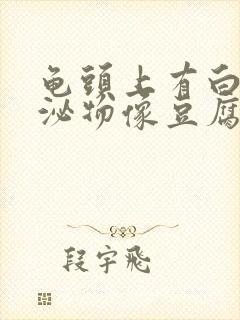 龟头上有白
泌物像豆腐
段宇飛